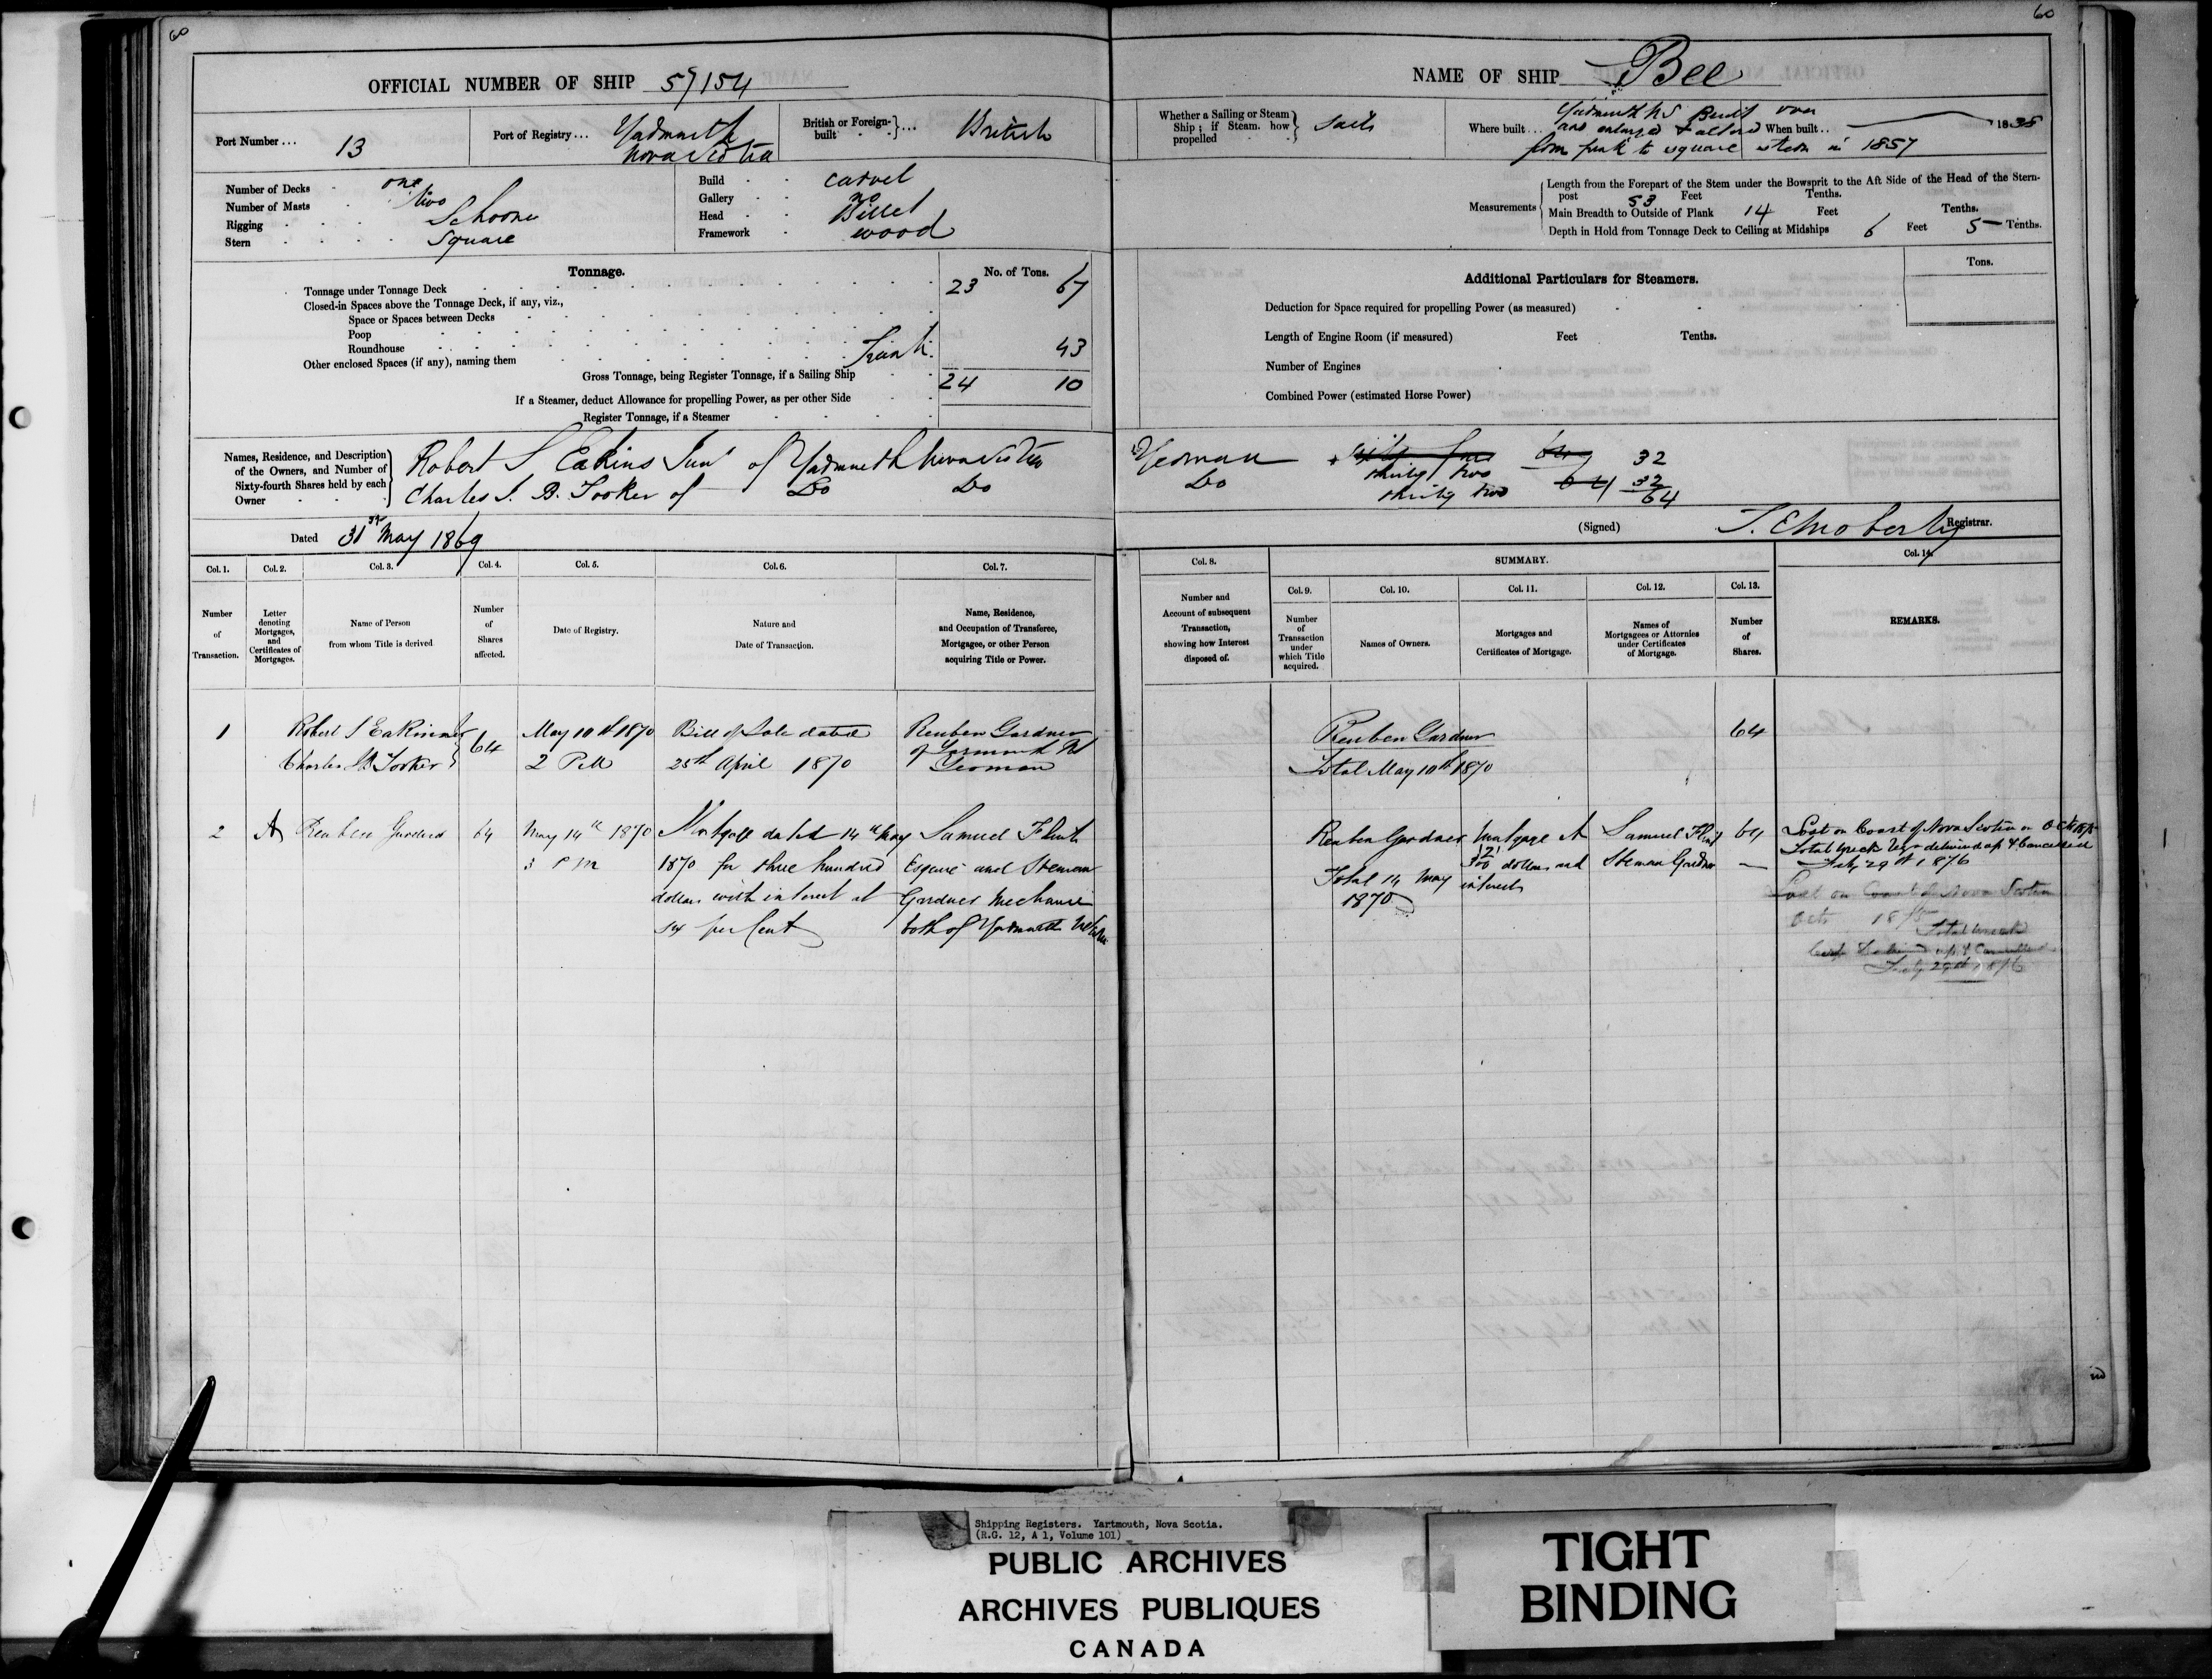 60
OFFICIAL NUMBER OF SHIP 57154
Port Number... 13
Port of Registry... Yarmouth
Nova Scotia
British or Foreign-built } ... British
Number of Decks one
Number of Masts two
Rigging Schooner
Stern Square
Build Carvel
Gallery no
Head Billet
Framework wood
Tonnage. No. of Tons.
Tonnage under Tonnage Deck 23 67
Closed-in Spaces above the Tonnage Deck, if any, viz.,
Space or Spaces between Decks
Poop
Roundhouse
Other enclosed Spaces (if any), naming them Trunk 43
Gross Tonnage, being Register Tonnage, if a Sailing Ship 24 10
If a Steamer, deduct Allowance for propelling Power, as per other Side
Register Tonnage, if a Steamer
Names, Residence, and Description
of the Owners, and Number of
Sixty-fourth Shares held by each
Owner
Robert S Eakins Junr of Yarmouth Nova Scotia
Charles S. B. Tooker of Do Do
Dated 31st May 1869
Col. 1. Col. 2. Col. 3. Col. 4. Col. 5. Col. 6. Col. 7.
Number of Transaction.
Letter denoting Mortgages, and Certificates of Mortgages.
Name of Person from whom Title is derived
Number of Shares affected.
Date of Registry.
Nature and Date of Transaction.
Name, Residence, and Occupation of Transferee, Mortgagee, or other Person acquiring Title or Power.
1 Robert S Eakins Jr 64 May 10th 1870 Bill of Sale dated Reuben Gardner
Charles S B Tooker 2 PM 25th April 1870 of Yarmouth NS
Yeoman
2 A Reuben Gardner 64 May 14th 1870 Mortgage dated 14th May Samuel Flint
3 PM 1870 for three hundred Esquire and Steman
dollars with interest at Gardner Mechanic
per Cent both of Yarmouth
60
NAME OF SHIP Bee
Whether a Sailing or Steam Ship; if Steam, how propelled } Sails
Where built... Yarmouth NS Built over
and enlarged & altered When built.. 1838
from pink to square stern in 1857
Measurements
Length from the Forepart of the Stem under the Bowsprit to the Aft Side of the Head of the Stern-
post 53 Feet Tenths.
Main Breadth to Outside of Plank 14 Feet Tenths.
Depth in Hold from Tonnage Deck to Ceiling at Midships 6 Feet 5 Tenths.
Additional Particulars for Steamers. Tons.
Deduction for Space required for propelling Power (as measured)
Length of Engine Room (if measured) Feet Tenths.
Number of Engines
Combined Power (estimated Horse Power)
Yeoman sixty four 64 32
Do thirty two 64 32
thirty two 64
(Signed) Registrar.
Col. 8. SUMMARY. Col. 14.
Col. 9. Col. 10. Col. 11. Col. 12. Col. 13.
Number and Account of subsequent Transaction, showing how Interest disposed of.
Number of Transaction under which Title acquired.
Names of Owners.
Mortgages and Certificates of Mortgage.
Names of Mortgagees or Attornies under Certificates of Mortgage.
Number of Shares.
REMARKS.
Reuben Gardner 64
Total May 10th 1870
Reuben Gardner Mortgage A Samuel Flint 64 Lost on Coast of Nova Scotia in Oct 1875
300 dollars and Steman Gardner Total wreck delivered up & Cancelled
Total 14 May interest July 29th 1876
1870
Lost on Coast of Nova Scotia
Oct 1875
Total wreck
up & Cancelled
July 29th 1876
Shipping Registers. Yartmouth, Nova Scotia.
(R.G. 12, A 1, Volume 101)
PUBLIC ARCHIVES
ARCHIVES PUBLIQUES
CANADA
TIGHT
BINDING